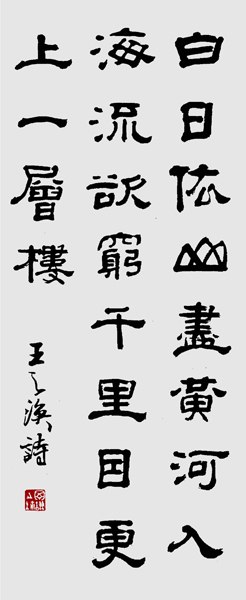 白日依山盡黃河入
海流欲窮千里目更
上一層樓
王之渙詩